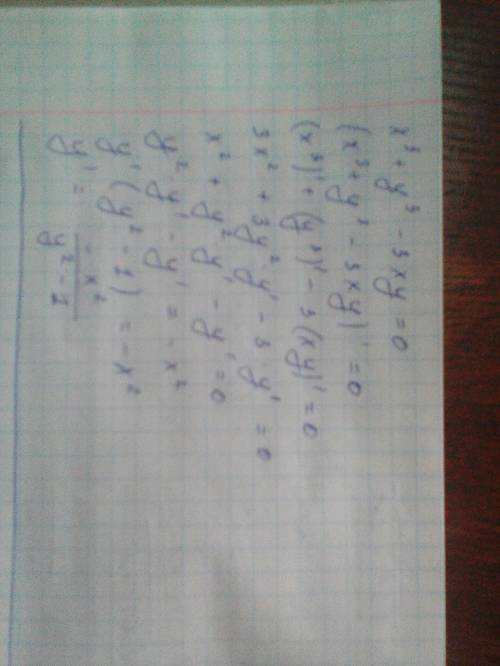 x³ + y³ - 3xy = 0
(x³ + y³ - 3xy)' = 0
(x³)' + (y³)' - 3(xy)' = 0
3x² + 3y² y' - 3 y' = 0
x² + y² y' - y' = 0
y² y' - y' = -x²
y' (y² - 1) = -x²
y' = -x² / y² - 1